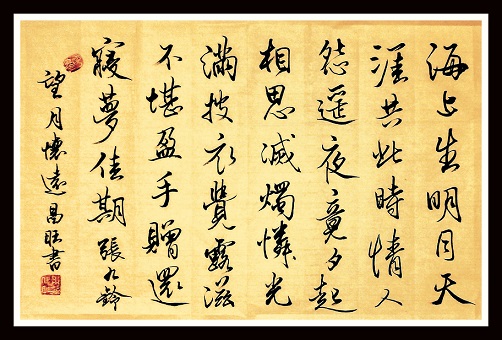 海上生明月天
涯共此時情人
怨遙夜竟夕起
相思滅燭憐光
滿披衣覺露滋
不堪盈手贈還
寢夢佳期張九齡
望月懷遠昌旺書